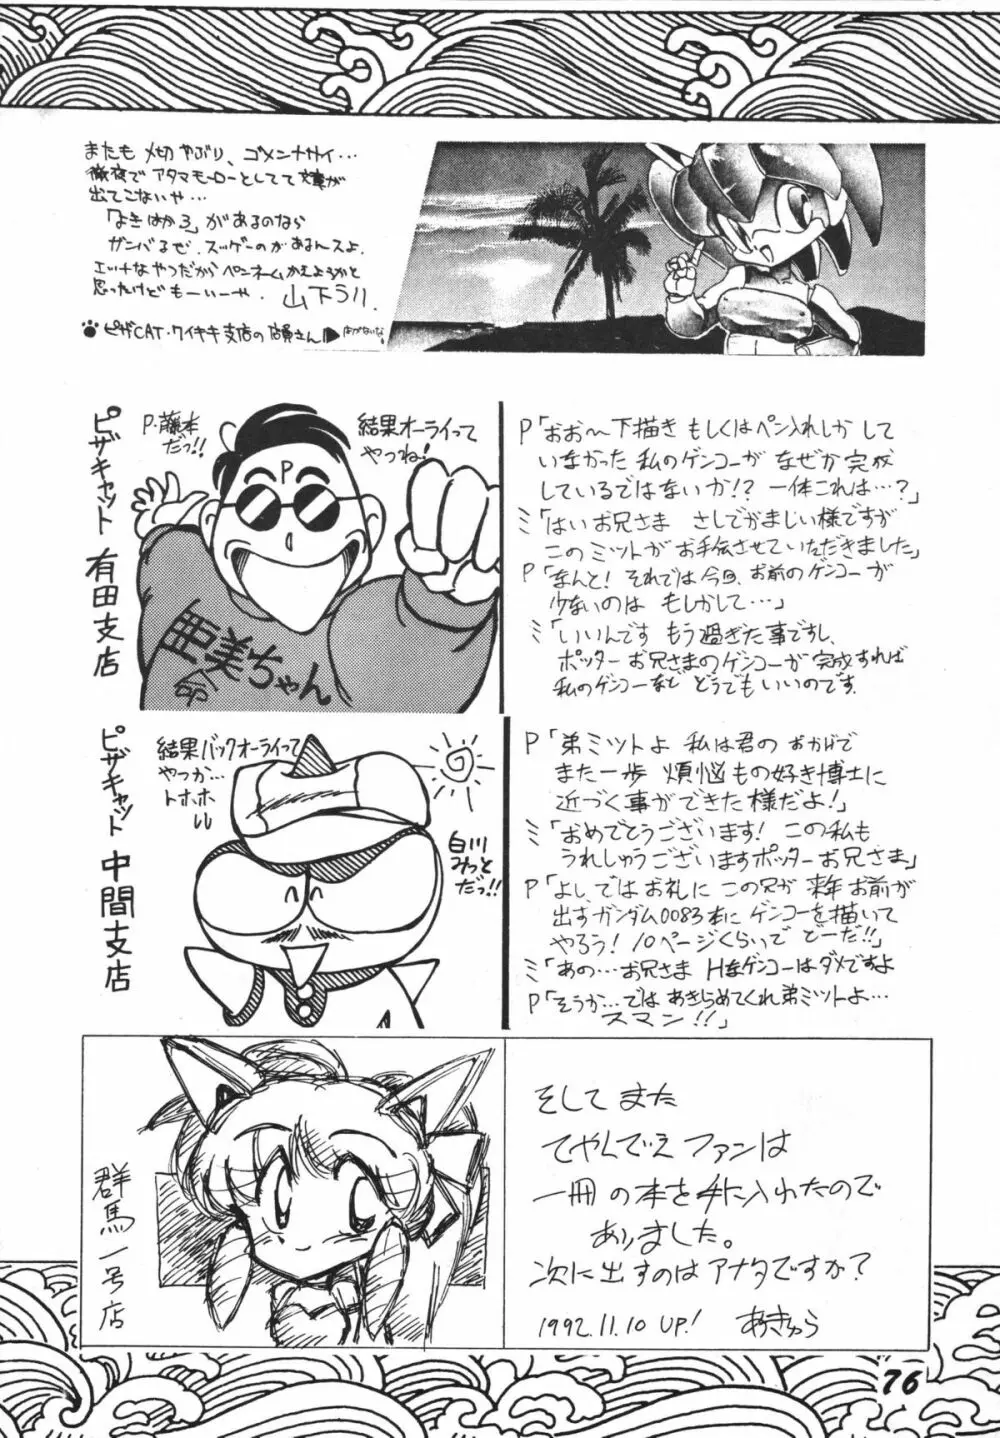 またも〆切やぶり、ゴメンナサイ…
徹夜でアタマモーローとしてて文章が
出てこないや…
「よきはかろ」があるのなら
ガンバるぜ、スッゲーのがあるんスよ。
エッチなやつだからペンネームかえよるかと
思ったけどもーいーや. 山下うり
ピザCAT・ワイキキ支店の店員さん
ピザキャット 有田支店
P・藤本
だっ!!
結果オーライって
やつね!
P
亜美ちゃん
命
P「おお〜下描きもしくはペン入れしかして
いなかった私のゲンコーがなぜか完成
しているではないか!? 一体これは…?」
ミ「はいお兄さま さしでがまじい様ですが
このミットがお手伝させていただきました」
P「なんと! それでは今回、お前のゲンコーが
少ないのは もしかして…」
ミ「いいんです もう過ぎた事ですし、
ポッターお兄さまのゲンコーが完成すれば
私のゲンコーなど どうでもいいのです.
ピザキャット 中間支店
結果バックオーライって
やつか…
トホホ
白川
みっと
だっ!!
P「弟ミットよ 私は君のおかげで
また一歩 煩悩もの好き博士に
近づく事ができた様だよ!」
ミ「おめでとうございます! この私も
うれしゅうございますポッターお兄さま」
P「よし、ではお礼に この兄が 来年お前が
出すガンダム0083本に ゲンコーを描いて
やろう! 10ページくらいで どーだ!!」
ミ「あの…お兄さま Hなゲンコーはダメですよ
P「そうか…では あきらめてくれ弟ミットよ…
スマン!!」
群馬一号店
そして また
てやんでぃえ ファンは
一冊の本を手に入れたので
ありました。
次に出すのはアナタですか?
1992.11.10 UP! あきゅら
76